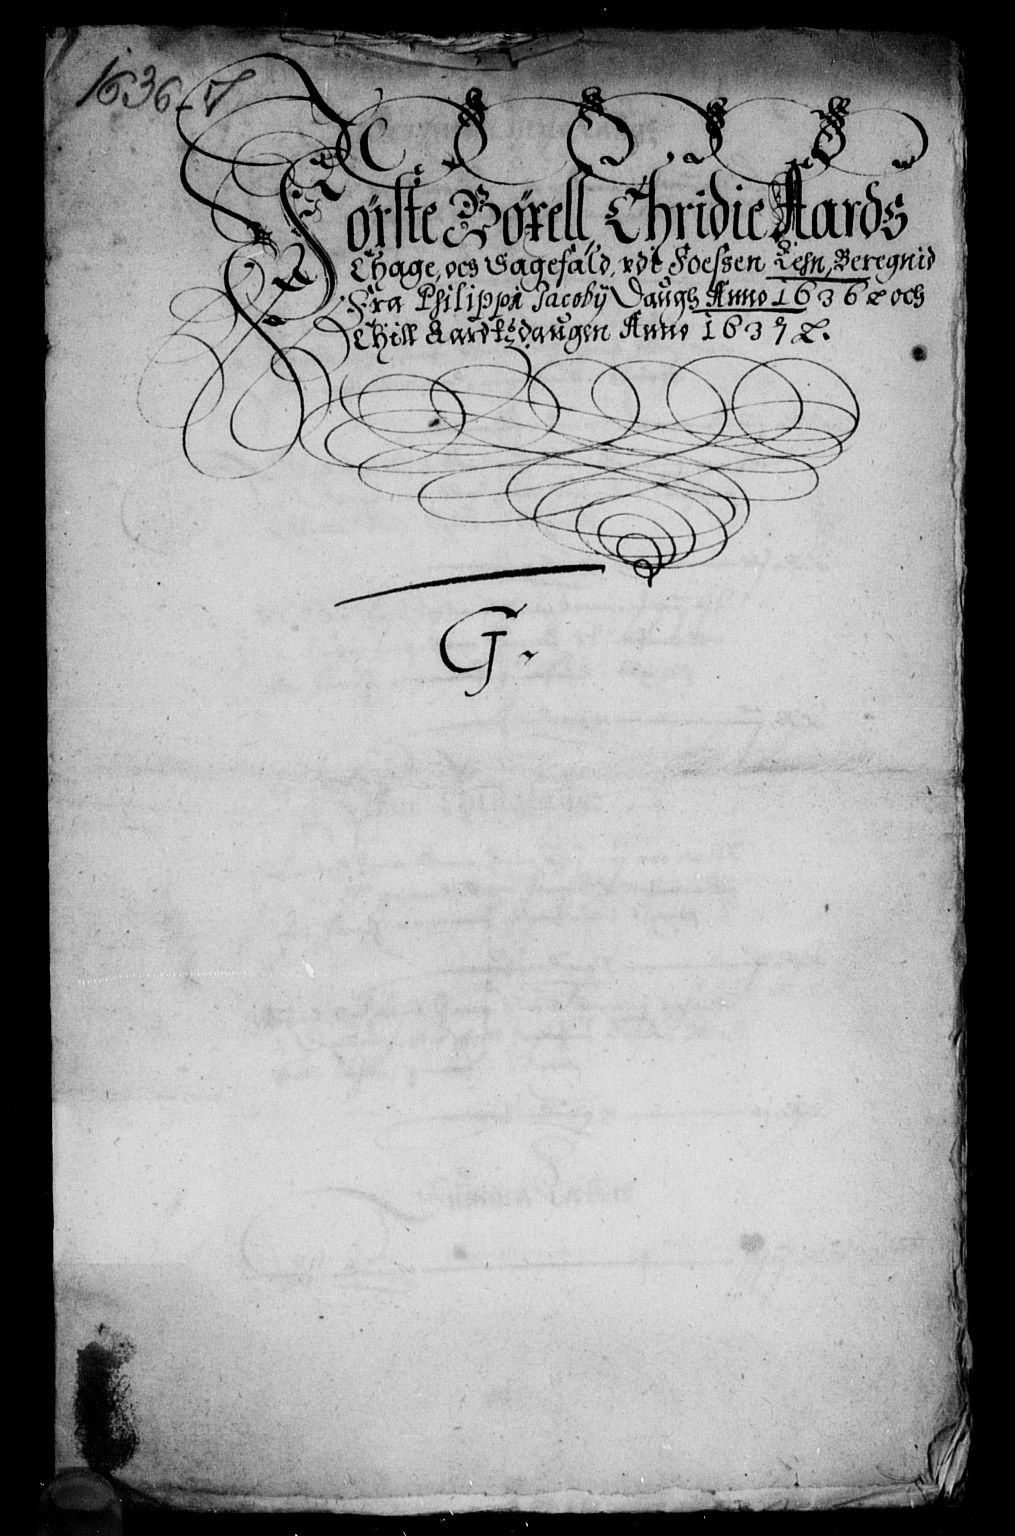 1636-7
Første Bøxell Thridie Aards
Thage, och Sagefald, udi Foessen Lehn, Beregnid
Fra Philippi Jacobÿ Daugh Anno 1636 & och
Thill Aardtzdaugen Anno 1637 &.
G.